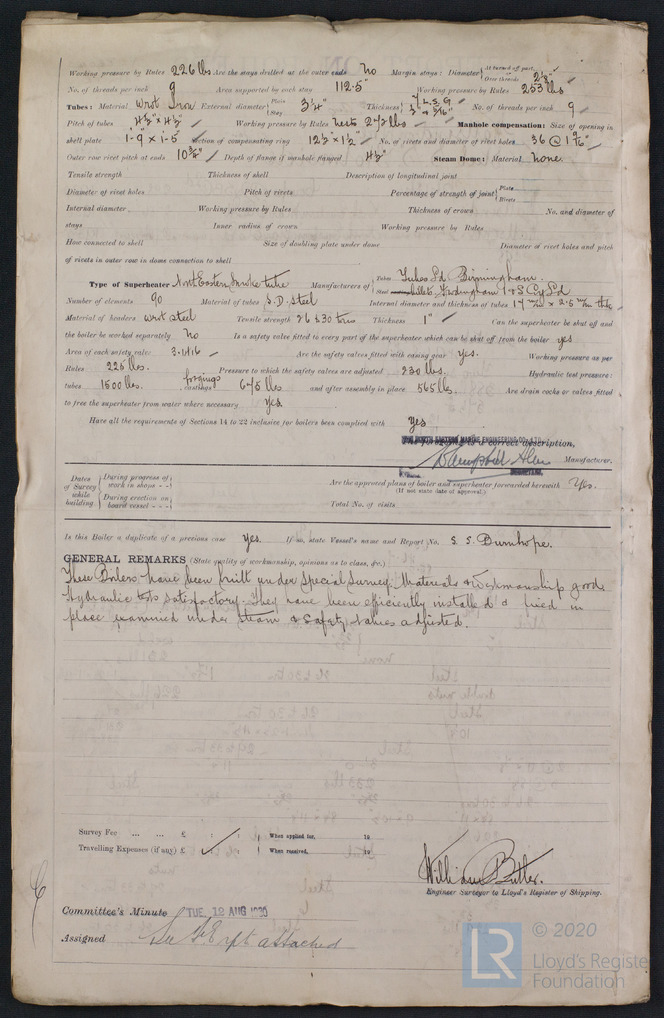 Working pressure by Rules 226 lbs Are the stays drilled at the outer ends No Margin stays: Diameter { At turned off part, or Over threads 2 1/8"
No. of threads per inch 9 Area supported by each stay 112.5" Working pressure by Rules 253 lbs
Tubes: Material Wrot Iron External diameter { Plain Stay 3 1/4" Thickness { No. of threads per inch 9
Pitch of tubes 4 1/2" x 4 1/2" Working pressure by Rules Manhole compensation: Size of opening in
shell plate 1'-9" x 1'-5" Section of compensating ring 12 1/2 x 1 1/2" No. of rivets and diameter of rivet holes 36 @
Outer row rivet pitch at ends 10 3/4" Depth of flange if manhole flanged 4 1/2" Steam Dome: Material None.
Tensile strength Thickness of shell Description of longitudinal joint
Diameter of rivet holes Pitch of rivets Percentage of strength of joint { Plate Rivets
Internal diameter Working pressure by Rules Thickness of crown No. and diameter of
stays Inner radius of crown Working pressure by Rules
How connected to shell Size of doubling plate under dome Diameter of rivet holes and pitch
of rivets in outer row in dome connection to shell
Type of Superheater North Eastern Smoke tube Manufacturers of { Tubes Tubes Ld Birmingham.
Steel Frodingham I & S Co Ld
Number of elements 90 Material of tubes S.D. Steel Internal diameter and thickness of tubes 17 m/m x 2.5 m/m thk
Material of headers Wrot steel Tensile strength 26 & 30 tons Thickness 1" Can the superheater be shut off and
the boiler be worked separately No Is a safety valve fitted to every part of the superheater which can be shut off from the boiler yes
Area of each safety valve 3.1416 Are the safety valves fitted with easing gear Yes. Working pressure as per
Rules 225 lbs. Pressure to which the safety valves are adjusted 230 lbs. Hydraulic test pressure:
tubes 1500 lbs. forgings castings 675 lbs and after assembly in place 565 lbs. Are drain cocks or valves fitted
to free the superheater from water where necessary Yes.
Have all the requirements of Sections 14 to 22 inclusive for boilers been complied with Yes
THE NORTH EASTERN MARINE ENGINEERING CO. LTD.
The foregoing is a correct description,
Manufacturer.
Dates of Survey while building { During progress of work in shops - - Are the approved plans of boiler and superheater forwarded herewith Yes.
(If not state date of approval.)
During erection on board vessel - - - Total No. of visits
Is this Boiler a duplicate of a previous case Yes. If so, state Vessel's name and Report No. S.S. Burnhope.
GENERAL REMARKS (State quality of workmanship, opinions as to class, &c.)
These Boilers have been built under Special Survey. Materials & Workmanship good
Hydraulic tests satisfactory. They have been efficiently installed & fixed in
place examined under steam & Safety Valves adjusted.
Survey Fee ... ... £ : : When applied for, 19
Travelling Expenses (if any) £ : : When received, 19
William Butler.
Engineer Surveyor to Lloyd's Register of Shipping.
Committee's Minute TUE. 12 AUG 1930
Assigned See F.E. rpt attached
LR © 2020
Lloyd's Register
Foundation